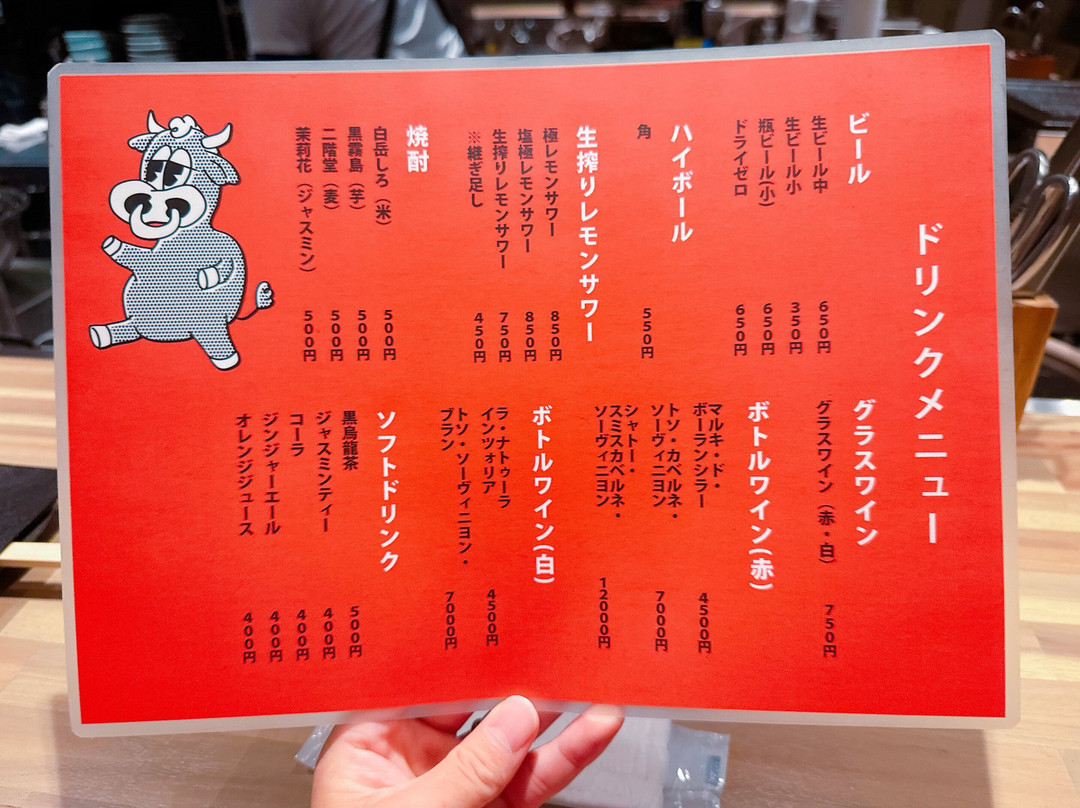 ドリンクメニュー
ビール
生ビール中 650円
生ビール小 350円
瓶ビール(小) 650円
ドライゼロ 650円
ハイボール
角 550円
生搾りレモンサワー
極レモンサワー 850円
塩極レモンサワー 850円
生搾りレモンサワー 750円
※継ぎ足し 450円
焼酎
白岳しろ（米） 500円
黒霧島（芋） 500円
二階堂（麦） 500円
茉莉花（ジャスミン） 500円
グラスワイン
グラスワイン（赤・白） 750円
ボトルワイン(赤)
マルキ・ド・
ボーランシラー 4500円
トソ・カベルネ・
ソーヴィニヨン 7000円
シャトー・
スミスカベルネ・
ソーヴィニヨン 12000円
ボトルワイン(白)
ラ・ナトゥーラ
インツォリア 4500円
トソ・ソーヴィニヨン・
ブラン 7000円
ソフトドリンク
黒烏龍茶 500円
ジャスミンティー 400円
コーラ 400円
ジンジャーエール 400円
オレンジジュース 400円